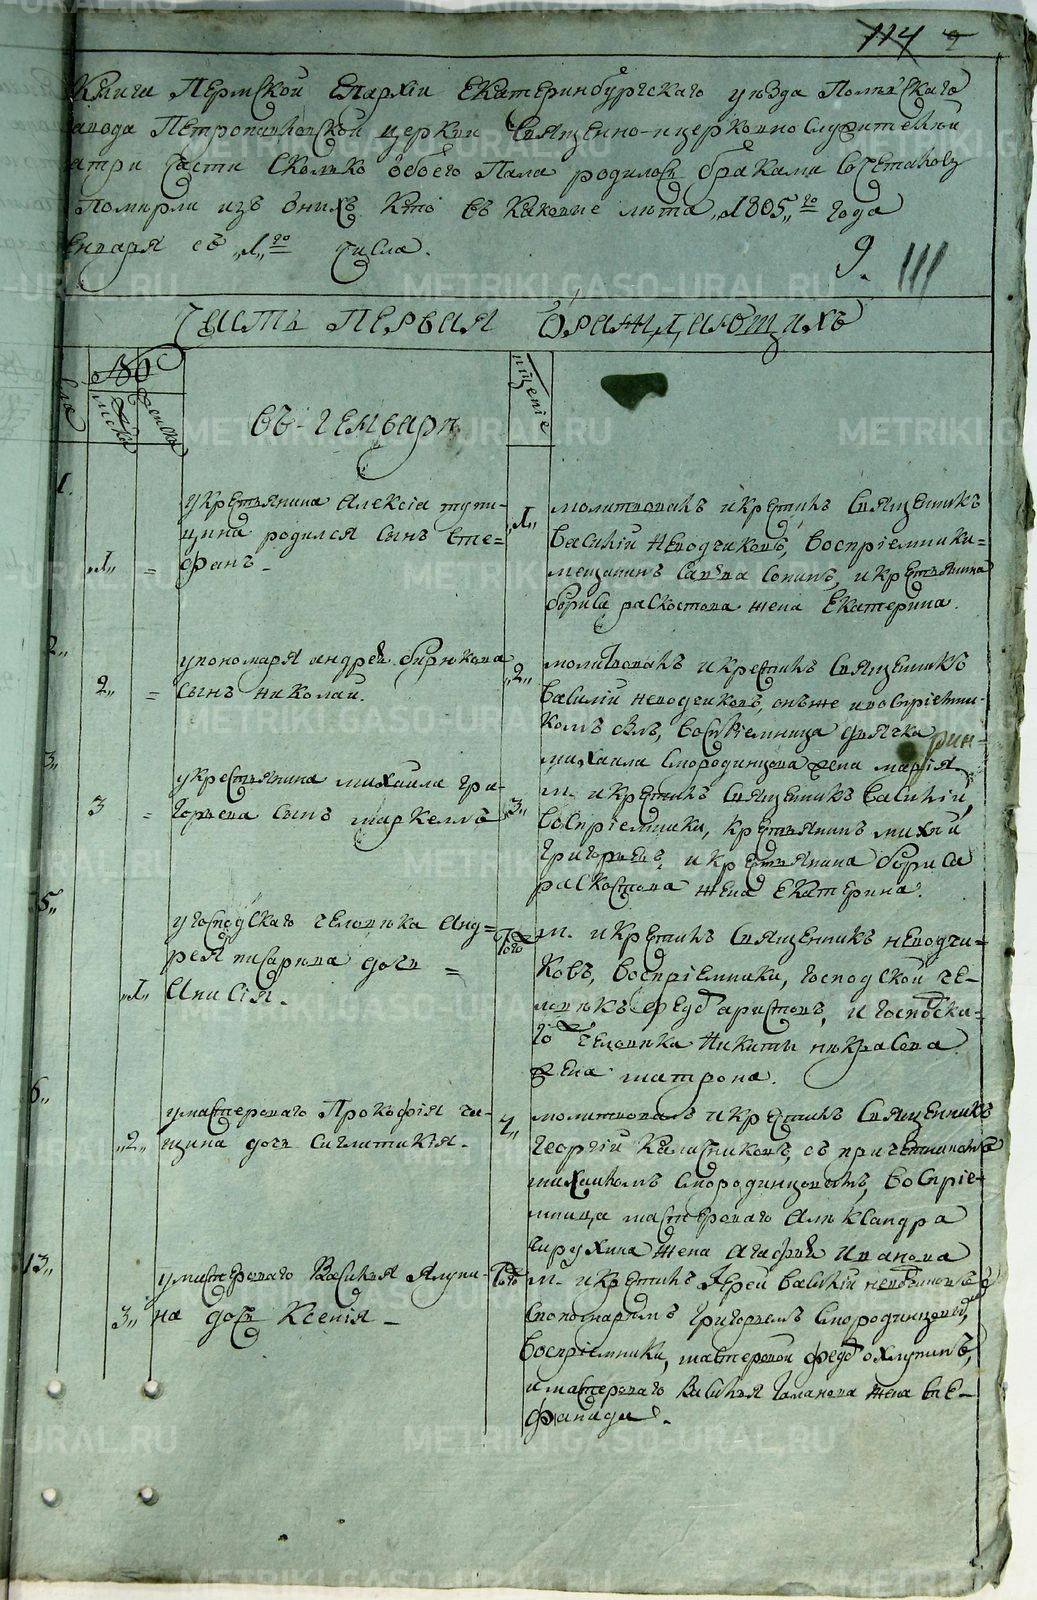 114 9
Книга Пермской Епархіи Екатеринбургскаго уезда Полевскаго
авода Петропавловской церкви Священно-и церковно служительми
атри части сколко обоего Пола родилось браками Сочеталось
Померли изъ оныхъ кто въ Каковые лета, 1805,,го года
Генваря съ ,,1,,го числа.
9. 111
Часть Первая О раждающихъ
Число
№
мужеска женска
въ Генваре
крещеніе
1.
,,1,, =
укрестьянина Алексіа тупи-
цына родился сынъ Сте-
фанъ -
,,1,,
молитвовалъ и крестилъ Священникъ
Василій Неводчиковъ, воспріемники-
мещанинъ Савва Сопинъ, и крестьянина
бориса раскостова жена Екатерина.
2,,
2,, =
упономаря андрея бирюкова
сынъ николай.
,,2,,
молитвовалъ и крестилъ Священникъ
Василій неводчиковъ, онъ же и воспріемни-
комъ былъ, воспріемница дьячка
михаила Смородинцова жена марія
3,,
3 =
укрестьянина михаила гри-
горьева сынъ маркеллъ
,,3,,
м. и крестилъ Священникъ Василій,
воспріемники, крестьянинъ
Григорьевъ, и крестьянина бориса
раскостова жена Екатерина.
5,,
,,1,,
угосподскаго человека Анд=
рея писарева дочь =
Анисія.
Того
м. и крестилъ Священникъ неводчи-
ковъ, воспріемники, господской че-
ловекъ федоръ аристовъ, и господска-
го человека Никиты некрасова
жена матрона.
6,,
,,2,,
умастероваго Прокофія ча-
щина дочь Сигклитикія.
7,,
молитвовалъ и крестилъ Священникъ
Георгій Калашниковъ, съ причетникомъ
михаиломъ Смородинцовымъ, воспріе-
мница мастероваго Александра
чирухина жена Агафія Иванова
13,,
3,,
умастероваго Василья Ялуни-
на дочь Ксенія -
Того
м. и крестилъ Іерей Василій неводчиковъ
Спономаремъ Григорьемъ Смородинцовым,
воспріемники, мастеровой федоръ охлупинъ,
и мастероваго Василья Романова жена Сте-
фанида.